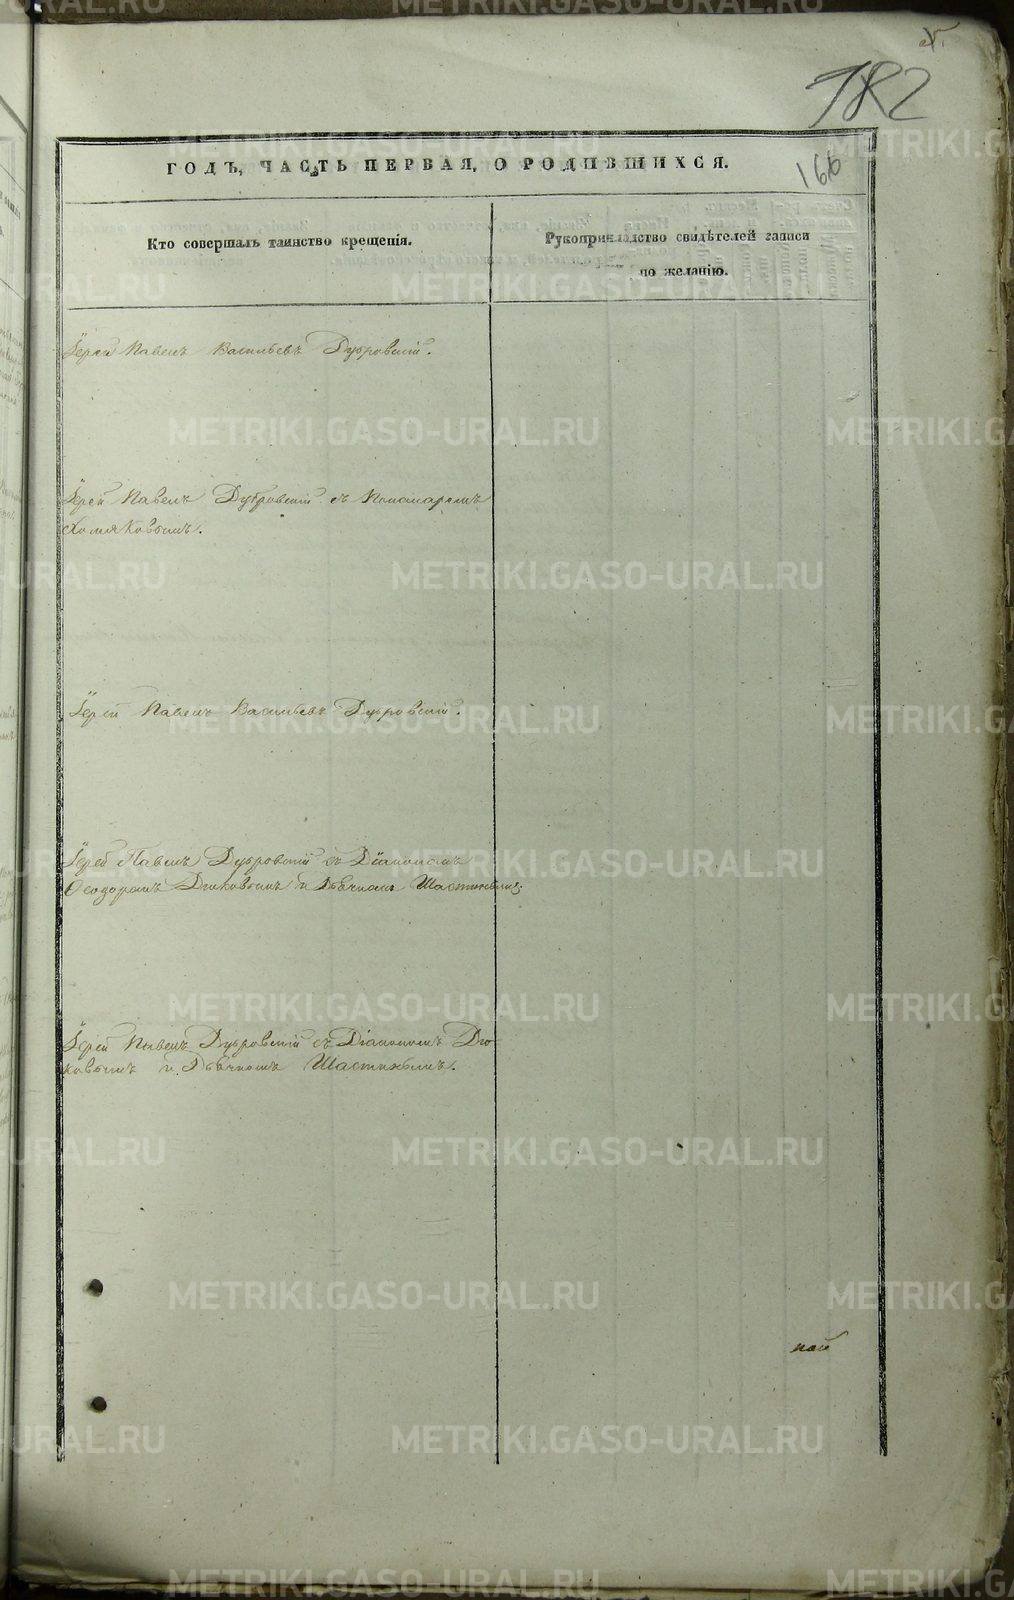 182
166
ГОДЪ, ЧАСТЬ ПЕРВАЯ, О РОДИВШИХСЯ.
Кто совершалъ таинство крещенія.
Рукоприкладство свидѣтелей записи
по желанію.
Іерей Павелъ Васильевъ Дубровскій.
Іерей Павелъ Дубровскій съ Пономаремъ
Хомяковымъ.
Іерей Павелъ Васильевъ Дубровскій.
Іерей Павелъ Дубровскій съ Діакономъ
Ѳеодоромъ Дьяковымъ и Дьячкомъ
Іерей Павелъ Дубровскій съ Діакономъ
и Дьячкомъ
METRIKI.GASO-URAL.RU